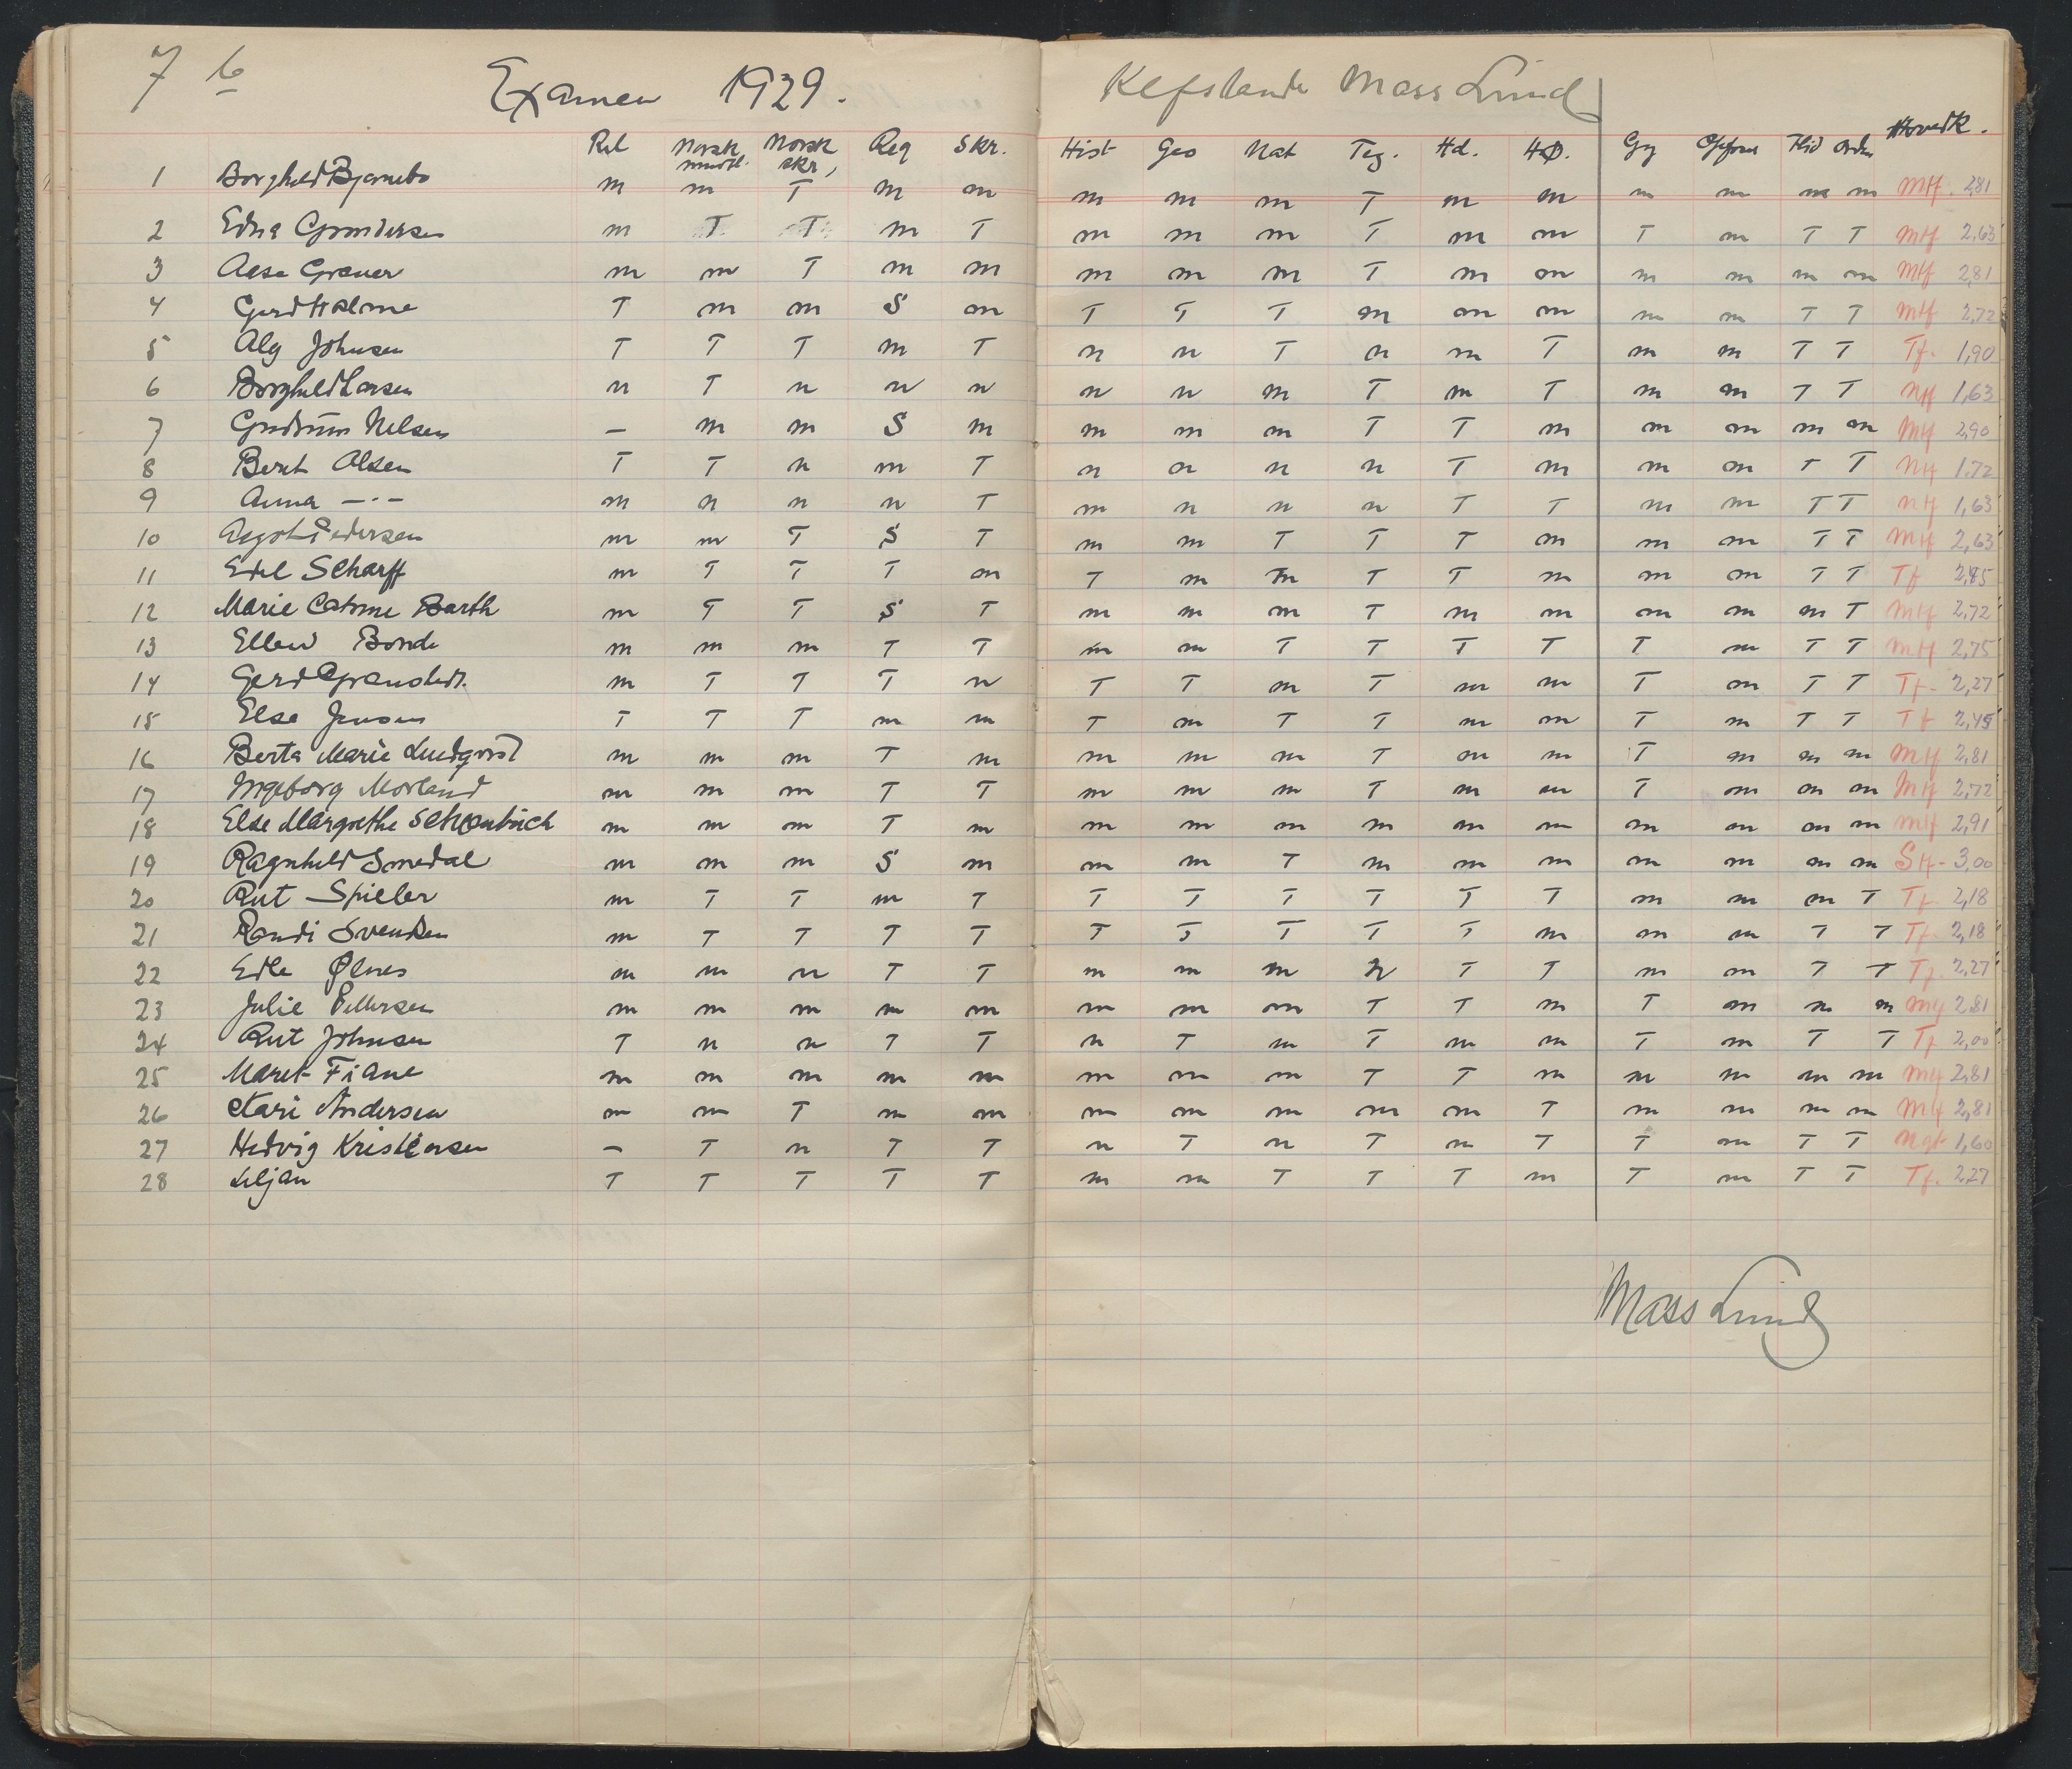 7 b Examen 1929. Klfstander Mass Lund
Rel Norsk mundtl. Norsk skr, Reg Skr. Hist Geo Nat Teg. Hd. HØ. Gy Opførs Flid Orden Hovedk.
1 Borghild Bjørnebo m m T m m m m m T m m m m m m Mtf. 2,81
2 Edna Gundersen m T T m T m m m T m m T m T T Mtf 2,63
3 Aase Graner m m T m m m m m T m m m m m m Mtf 2,81
4 Gerd Holme T m m S m T T T m m m m m T T Mtf 2,72
5 Alg Johnsen T T T m T n n T n m T m m T T Tf. 1,90
6 Borghild Larsen n T n n n n n m T m T m m T T Ntf 1,63
7 Gudrun Nelsen – m m S m m m m T T m m m m m Mtf 2,90
8 Berit Olsen T T n m T n n n n T m m m T T Ntf 1,72
9 Anna –·– m n n n T m n n n T T m m T T Ntf 1,63
10 Aagot Pedersen m m T S T m m T T T m m m T T Mtf 2,63
11 Edel Scharff m T T T m T m m T T m m m T T Tf 2,45
12 Marie Catrine Barth m T T S T m m m T m m m m m T Mtf 2,72
13 Ellen Bonde m m m T T m m T T T T T m T T Mtf 2,75
14 Gerd Granstedt. m T T T n T T m T m m T m T T Tf. 2,27
15 Else Jensen T T T m m T m T T m m T m T T Tf 2,45
16 Berta Marie Lindqvist m m m T m m m m T m m T m m m Mtf 2,81
17 Ingeborg Morland m m m T T m m m T m m T m m m Mtf 2,72
18 Else Margrethe Schønbüch m m m T m m m m m m m m m m m Mtf 2,91
19 Ragnhild Smedal m m m S m m m T m m m m m m m Stf. 3,00
20 Rut Spieler m T T m T T T T T T T m m m T Tf. 2,18
21 Randi Svendsen m T T T T T T T T T m m m T T Tf. 2,18
22 Edle Ølnes m m n T T m m m N T T m m T T Tf. 2,27
23 Julie Pettersen m m m m m m m m T T m T m m m Mtf 2,81
24 Rut Johnsen T n n T T n T m T m m T m T T Tf 2,00
25 Maret Fiane m m m m m m m m T T m m m m m Mtf 2,81
26 Kari Andersen m m T m m m m m m m T m m m m Mtf 2,81
27 Hedvig Kristensen – T n T T n T n T m T T m T T Ngt 1,60
28 Liljan T T T T T m m T T T m T m T T Tf. 2,27
Mass Lund